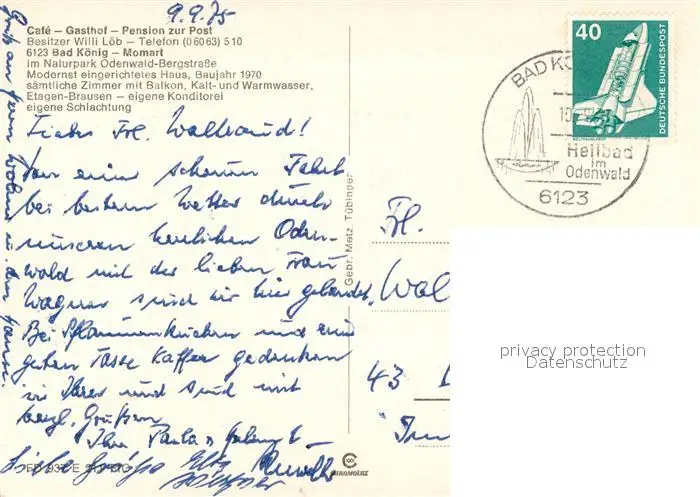 9.9.75
Café – Gasthof – Pension zur Post
Besitzer Willi Löb – Telefon (06063) 510
6123 Bad König – Momart
im Naturpark Odenwald-Bergstraße
Modernst eingerichtetes Haus, Baujahr 1970
sämtliche Zimmer mit Balkon, Kalt- und Warmwasser,
Etagen-Brausen – eigene Konditorei
eigene Schlachtung
Liebes Frl. Waltraud!
Von einer schönen Fahrt
bei bestem Wetter durch
unseren herrlichen Oden-
wald mit der lieben Frau
Wagner sind wir hier gelandet.
Bei Pflaumenkuchen und einer
guten Tasse Kaffee gedenken
wir Ihrer und sind mit
herzl. Grüßen
Ihre Paula
Liebe Grüße
Gebr. Metz, Tübingen
40
DEUTSCHE BUNDESPOST
BAD KÖ
Heilbad
im
Odenwald
6123
Frl.
Wal
43
privacy protection
Datenschutz
CHROMOLUX